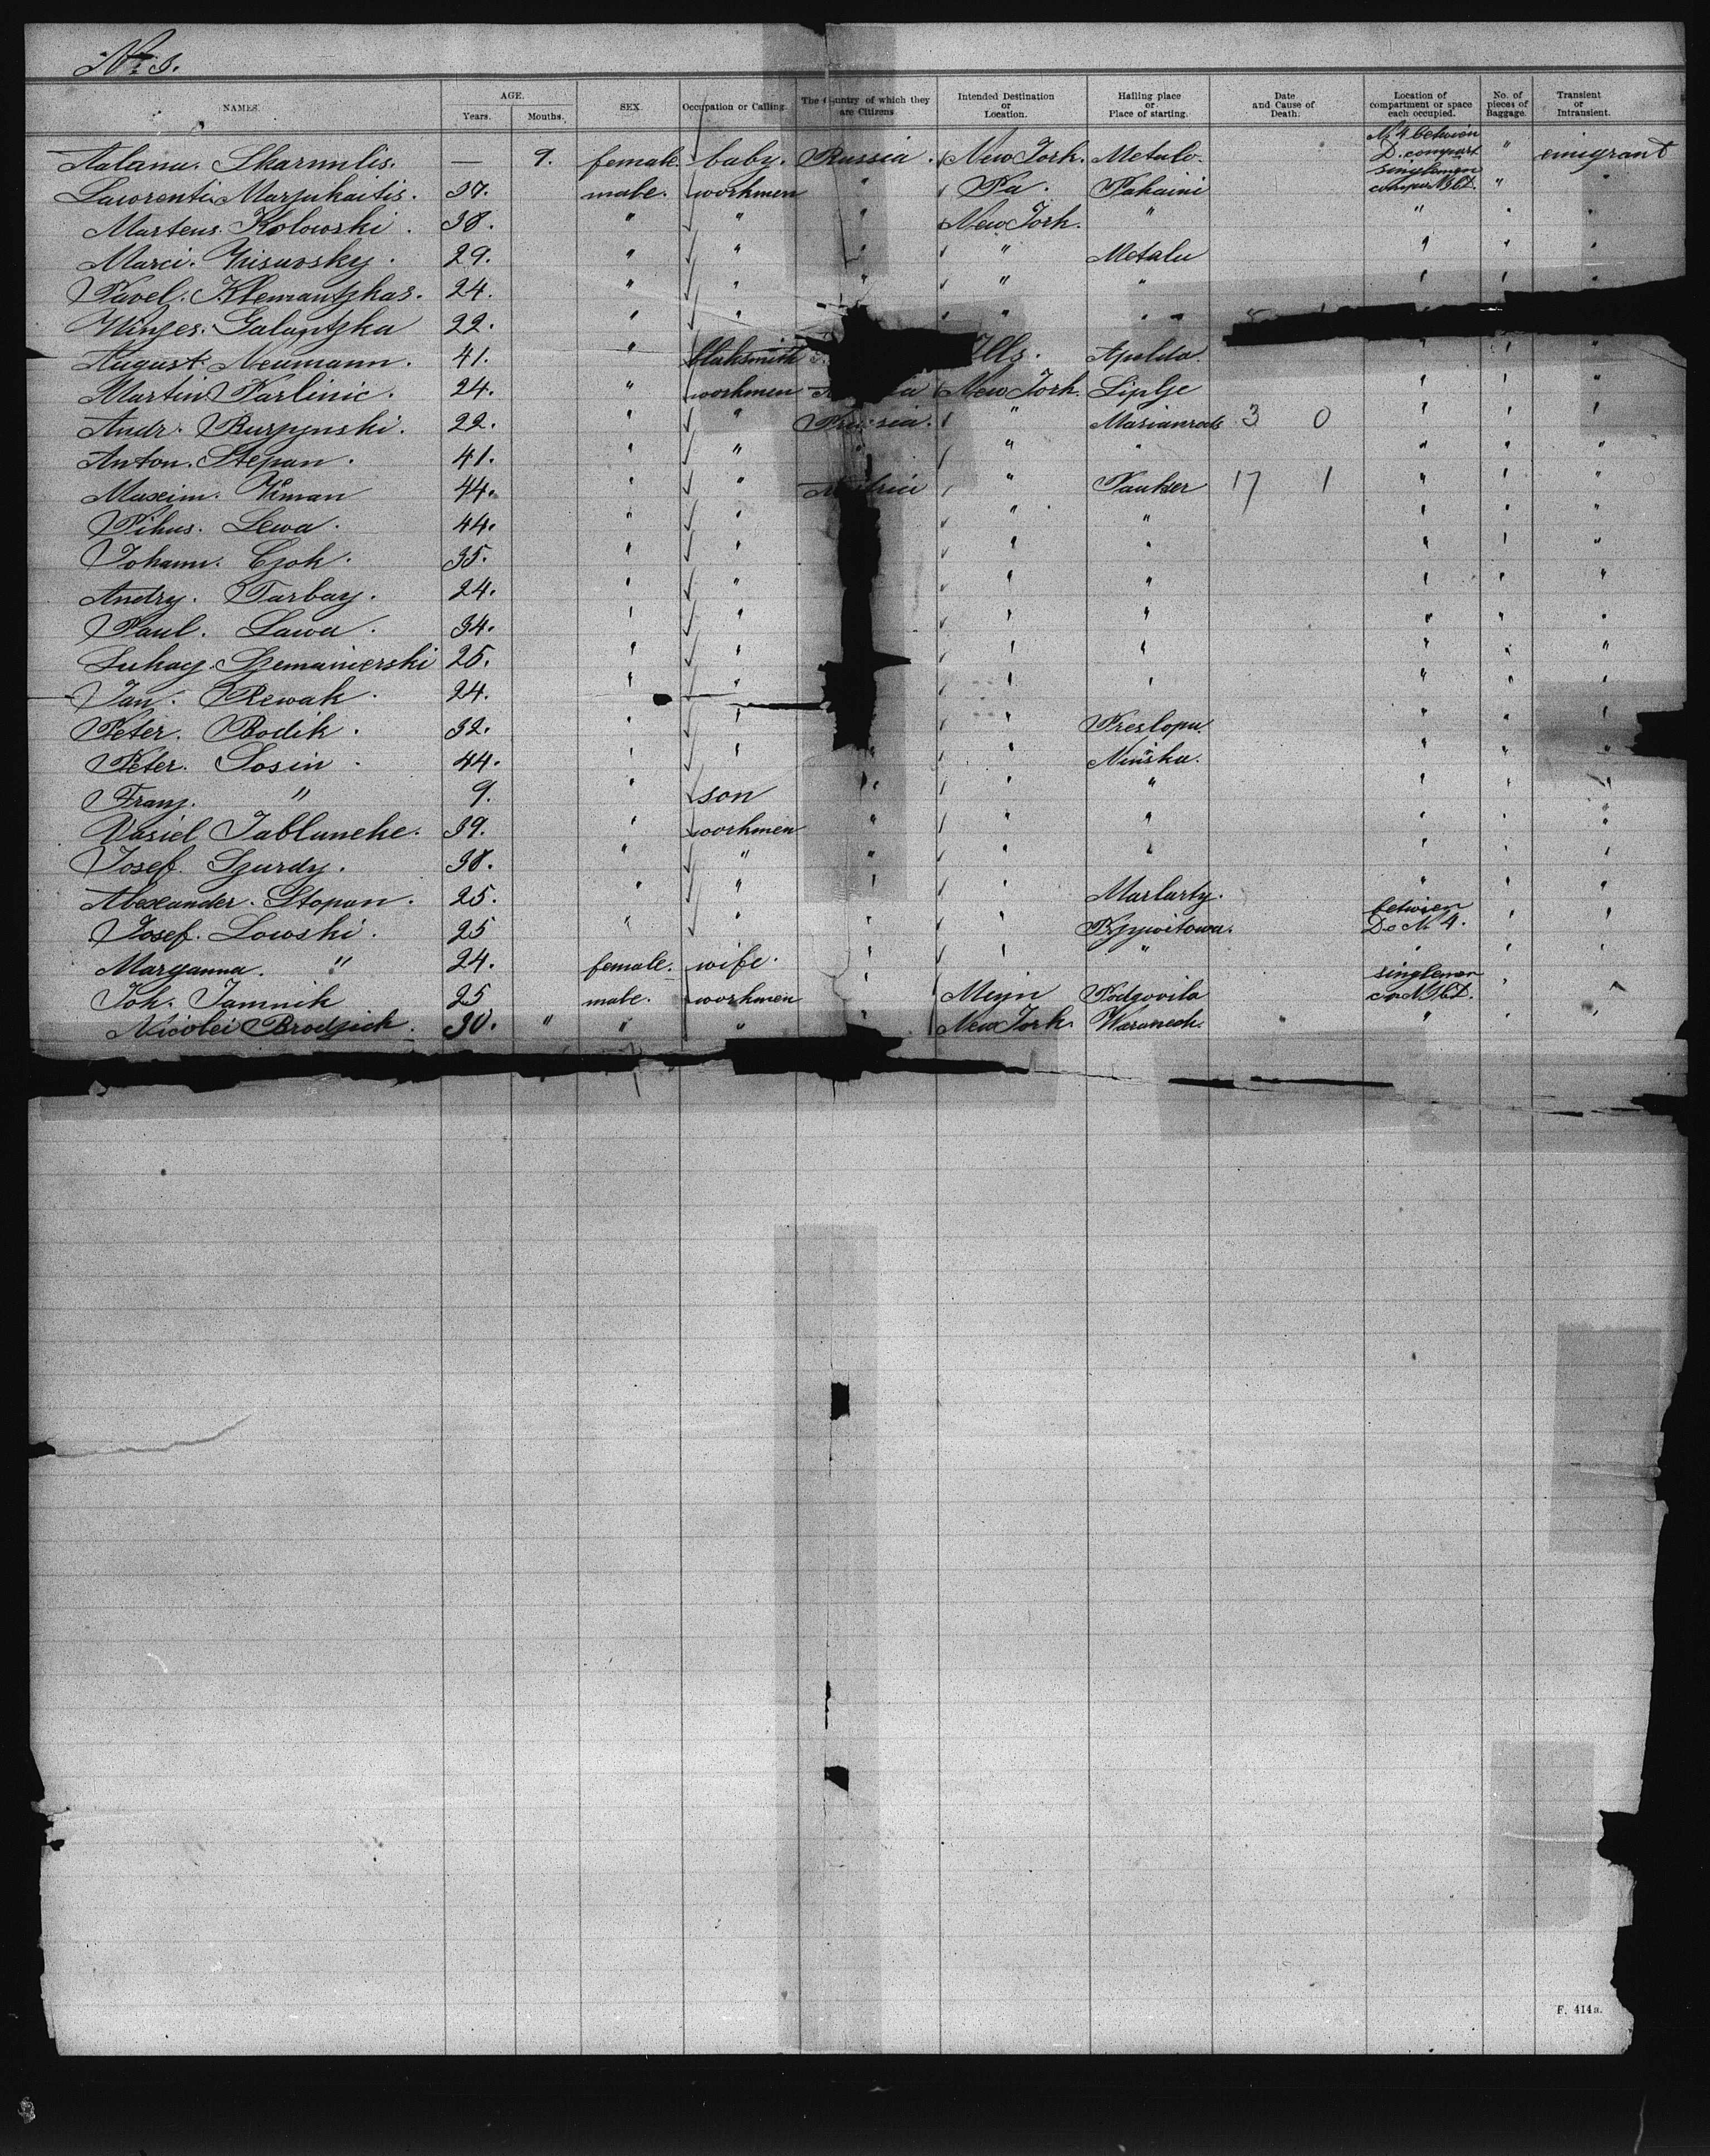 No 3.
NAMES. AGE. Years. Months. SEX. Occupation or Calling. The Country of which they are Citizens Intended Destination or Location. Hailing place or Place of starting. Date and Cause of Death. Location of compartment or space each occupied. No. of pieces of Baggage. Transient or Intransient.
Skarmulis. — 9. female. baby. Russia. New York. Metalo. No 4 between D. compart " emigrant
Marzukaitis. 37. male. workmen " Pa. Pakaini singlemen " "
Martens. Kolowski. 38. " " " New York. " " " "
Marci. 29. " " " " Metalu " " "
Pavel. Klemantzkas. 24. " " " " " " " "
Galantzka 22. " " " " " "
August Neumann. 41. " blaksmith Ills. Apolda. " " "
Martin Karlinic. 24. " workmen New York. Liplje " " "
Andr. Burzynski. 22. " " Prussia. " 3 0 " " "
Anton. Stepan. 41. " " " " " " "
Maxim. 44. " " " Pauker 17 1 " " "
Pihus. Lewa. 44. " " " " " " "
Johann. Czok. 35. " " " " " " "
Andry. Tarbay. 24. " " " " " " "
Paul. Lawa. 34. " " " " " " "
Lukacz. Szemanierski 25. " " " " " " "
Jan. Rewak. 24. " " " " " " "
Peter. Bodik. 32. " " " Preslopu. " " "
Peter. Sosin. 44. " " " " Ninska. " " "
Franz. " 9. " son " " " " " "
Wasiel Jablaneke. 39. " workmen " " " " " "
Josef. Szurdy. 38. " " " " " " " "
Alexander. Stopan. 25. " " " " Marlarty. " " "
Josef. Lowski. 25 " " " " between D. No 4. " "
Maryanna. " 24. female. wife. " " " " " "
Joh. Jamnik 25 male. workmen " Podgovila singlemen " "
Nicolei Brodzick. 30. " " " " New York. Waranech. " " "
F. 414a.